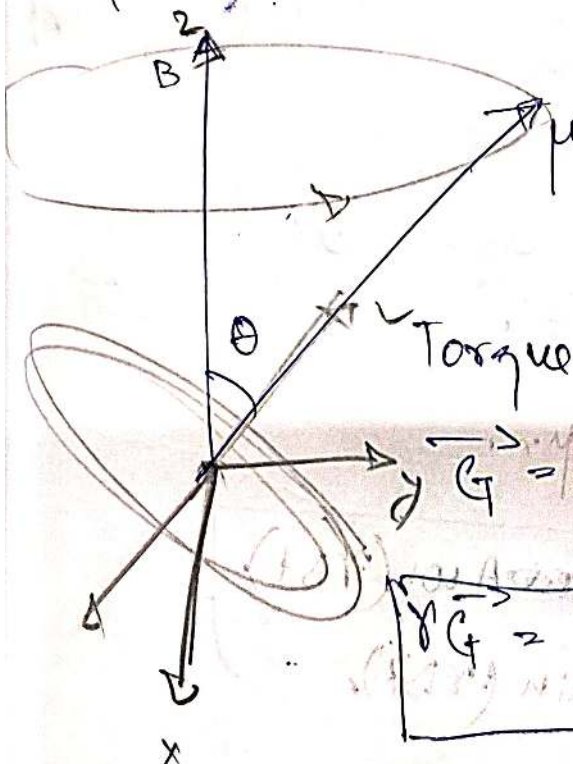 z
B
μ
θ
Torque
y
G⃗ =
γG⃗ =
x